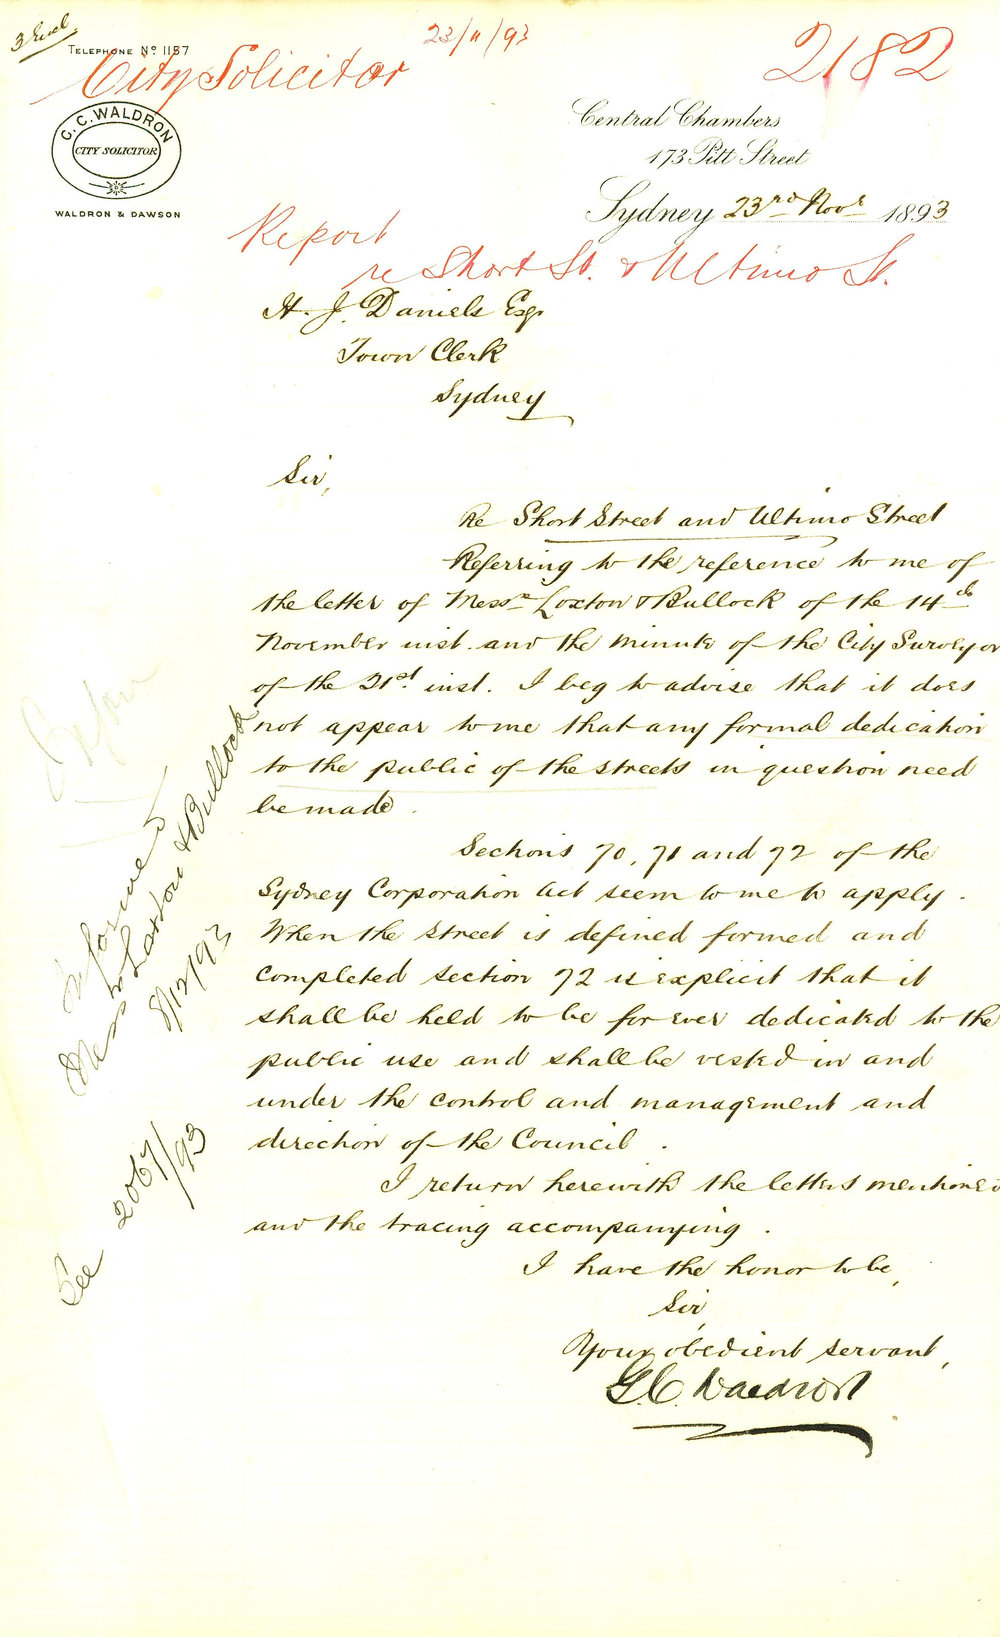 3 Encl
TELEPHONE No 1157
23/11/93
2182
City Solicitor
G. C. WALDRON
CITY SOLICITOR
WALDRON & DAWSON
Central Chambers
173 Pitt Street
Sydney 23rd Novr 1893
Report
re Short St. & Ultimo St.
H. J. Daniels Esq.
Town Clerk
Sydney
Sir,
Re Short Street and Ultimo Street
Referring to the reference to me of
the letter of Messrs Loxton & Bullock of the 14th
November inst. and the minute of the City Surveyor
of the 21st. inst. I beg to advise that it does
not appear to me that any formal dedication
to the public of the streets in question need
be made.
Sections 70, 71 and 72 of the
Sydney Corporation Act seem to me to apply.
When the street is defined formed and
completed section 72 is explicit that it
shall be held to be for ever dedicated to the
public use and shall be vested in and
under the control and management and
direction of the Council.
I return herewith the letters mentioned
and the tracing accompanying.
I have the honor to be,
Sir,
Your obedient servant,
G. C. Waldron
Informed
Messrs Loxton & Bullock
8/12/93
See 2067/93